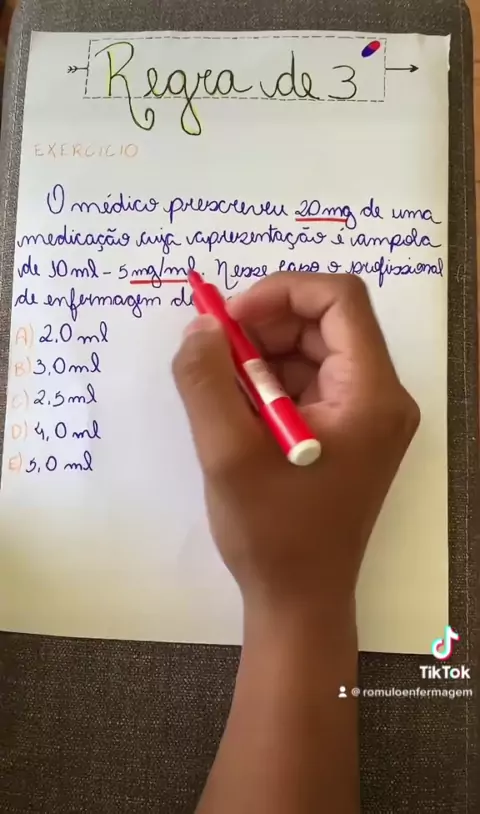 Regra de 3
EXERCICIO
O médico prescreveu 20mg de uma
medicação cuja apresentação é ampola
de 10ml - 5mg/ml. Nesse caso o profissional
de enfermagem
A) 2,0 ml
B) 3,0 ml
C) 2,5 ml
D) 4,0 ml
E) 5,0 ml
TikTok
@romuloenfermagem